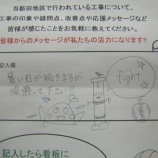 当新田地区で行われている工事について、
工事の印象や疑問点、改善点や応援メッセージなど
皆様が感じたことをお気軽に教えてください。
皆様からのメッセージが私たちの活力になります!!
記入欄
暑い日が続きますが
頑張って下さい
fight
記入したら看板に